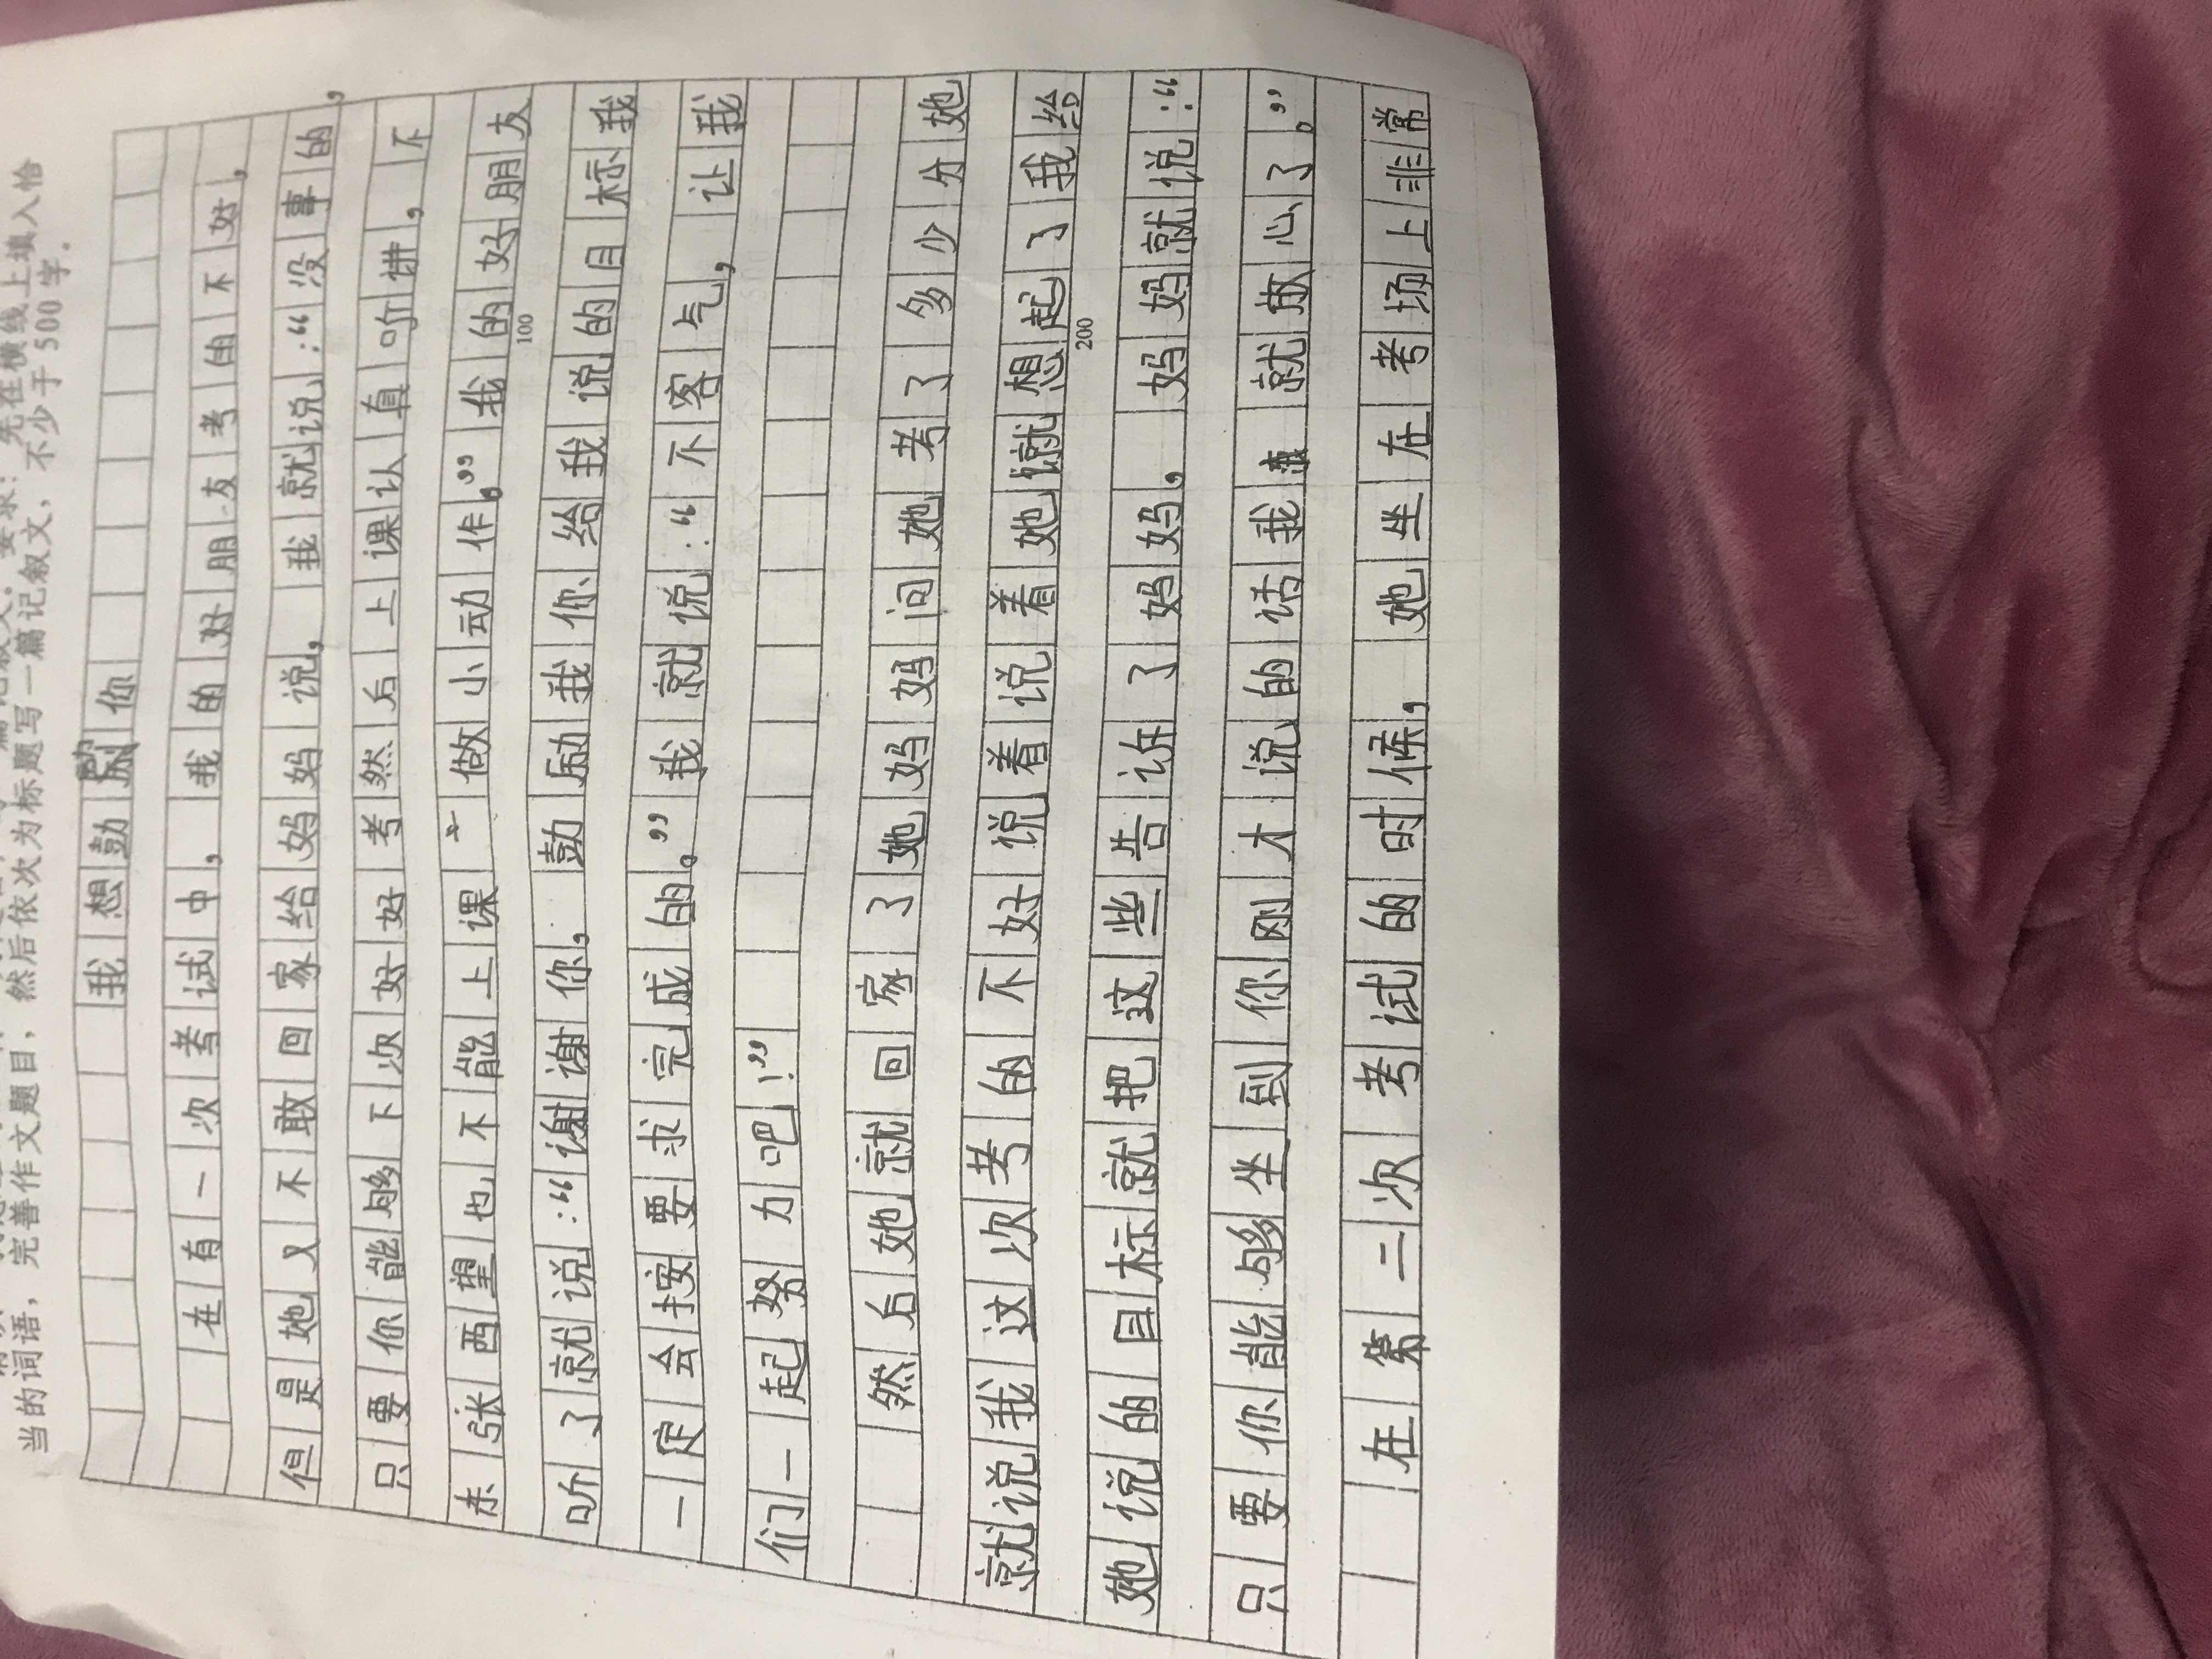 先在横线上填入恰
当的词语，完善作文题目，然后依次为标题写一篇记叙文，不少于500字。
我想鼓励你
在有一次考试中，我的好朋友考的不好，
但是她又不敢回家给妈妈说，我就说：“没事的，
只要你能够下次好好考然后上课认真听讲，不
东张西望也不能上课做小动作。”我的好朋友
100
听了就说：“谢谢你，鼓励我你给我说的目标我
一定会按要求完成的。”我就说：“不客气，让我
们一起努力吧！”
然后她就回家了她妈妈问她考了多少分她
就说我这次考的不好说着说着她就想起了我给
200
她说的目标就把这些告诉了妈妈，妈妈就说：“
只要你能够坐到你刚才说的话我就放心了。”
在第二次考试的时候，她坐在考场上非常